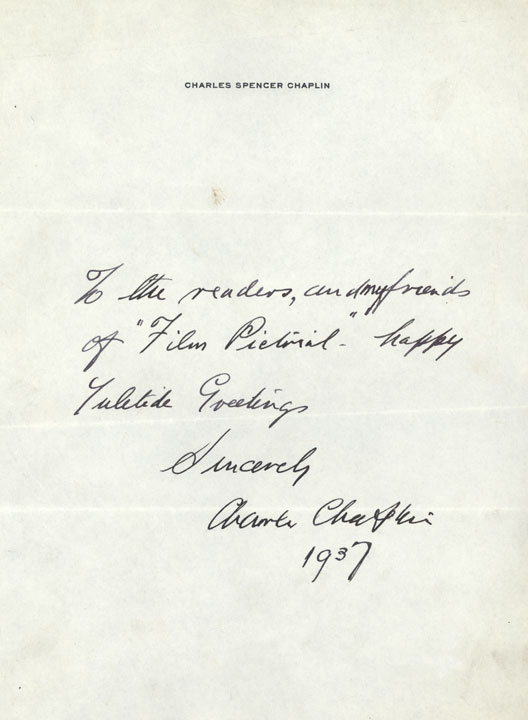 CHARLES SPENCER CHAPLIN
To the readers, and my friends
of "Film Pictorial-" happy
Yuletide Greetings
Sincerely
Charles Chaplin
1937